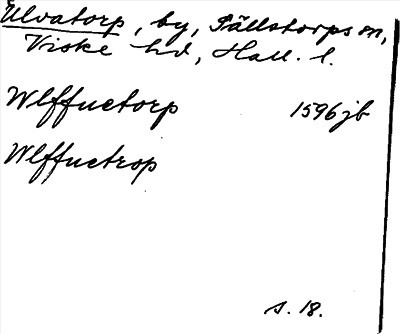 Ulvatorp, by, Fällstorps sn,
Viske hd, Hall. l.
Wlffuetorp 1596 jb
Wlffuetrop
s. 18.